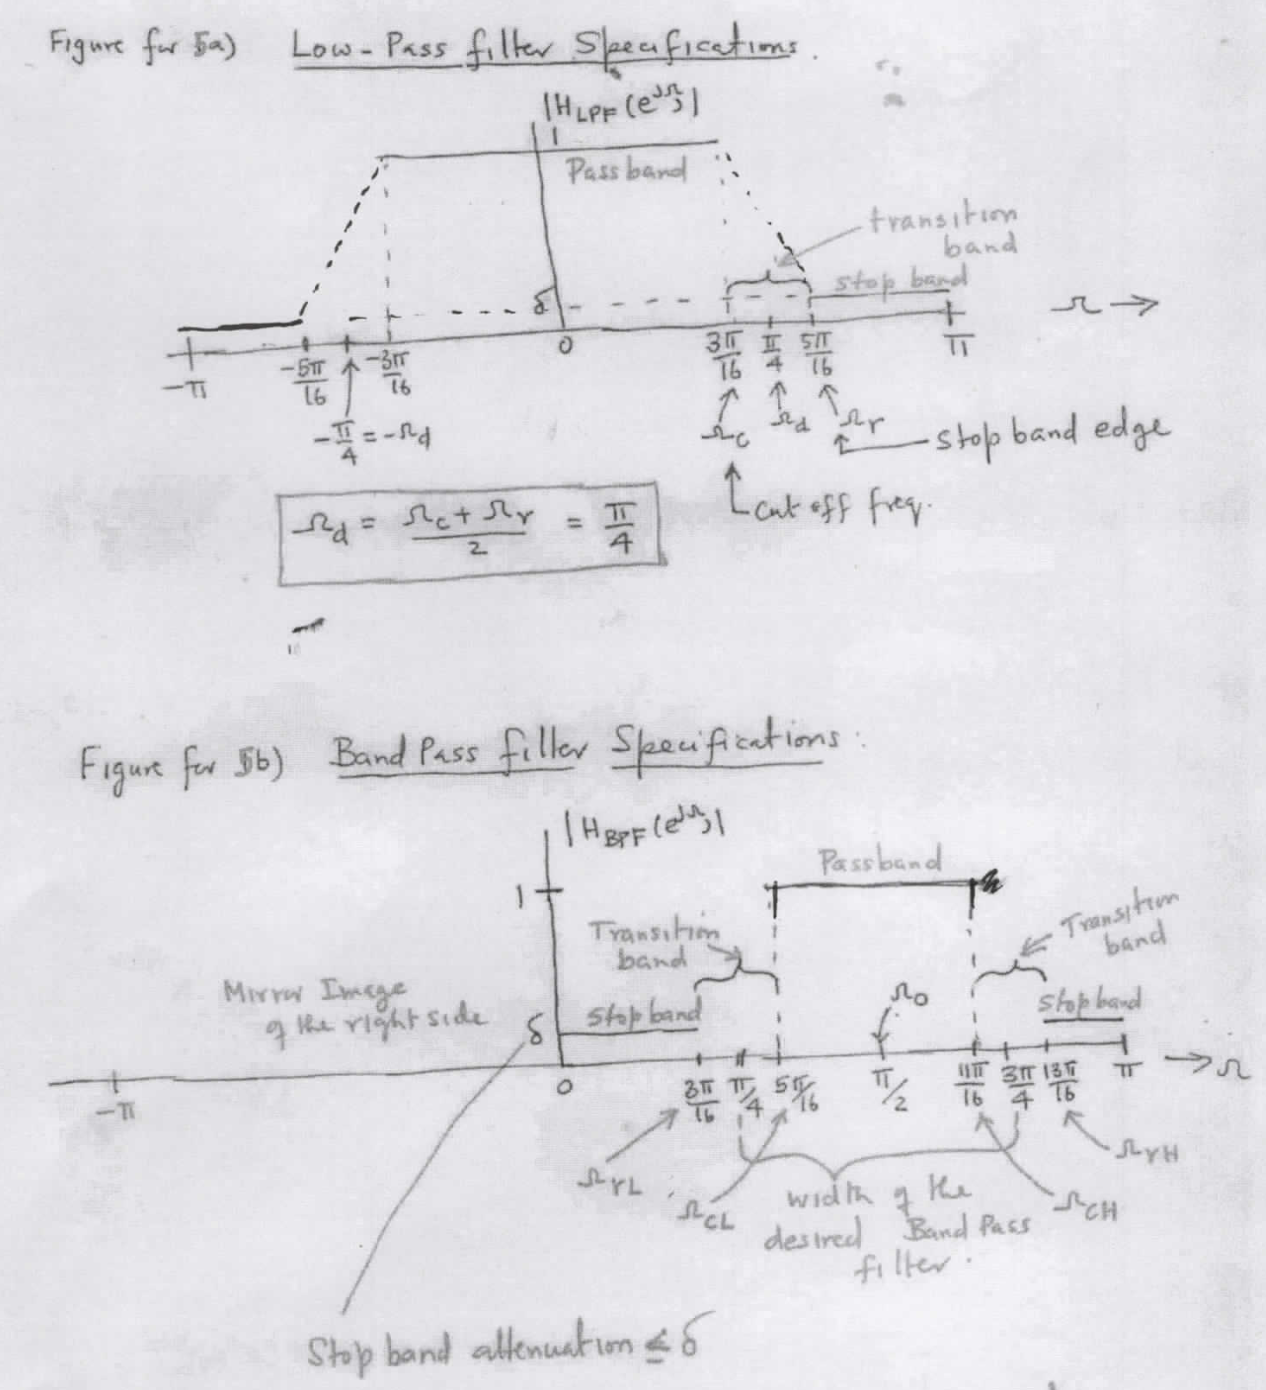 Figure for 5a) Low-Pass filter Specifications.
|H_LPF(e^jΩ)|
1
Passband
transition
band
δ
stop band
Ω →
-π
-5π/16
-3π/16
0
3π/16
π/4
5π/16
π
-π/4 = -Ω_d
Ω_c
Ω_d
Ω_r
stop band edge
cut off freq.
Ω_d = (Ω_c + Ω_r)/2 = π/4
Figure for 5b) Band Pass filter Specifications:
|H_BPF(e^jΩ)|
1
Passband
Transition
band
Transition
band
Mirror Image
of the right side
δ
stop band
Ω_0
Stop band
-π
0
3π/16
π/4
5π/16
π/2
11π/16
3π/4
13π/16
π
→ Ω
Ω_rL
Ω_CL
width of the
desired Band Pass
filter.
Ω_CH
Ω_rH
Stop band attenuation ≤ δ